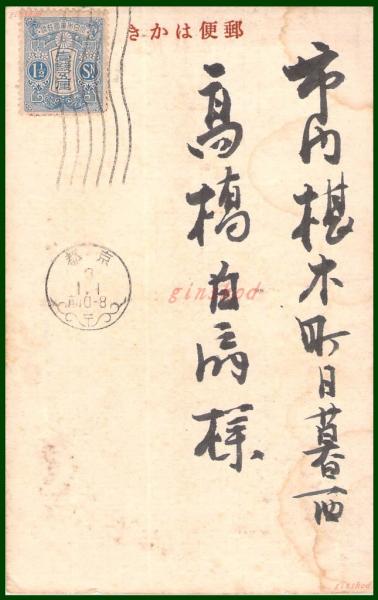 郵便はかき
市内椹木町日暮西
高橋白扇様
1½ Sn
京都
3
1.1
前0-8
ginshod
ginshod